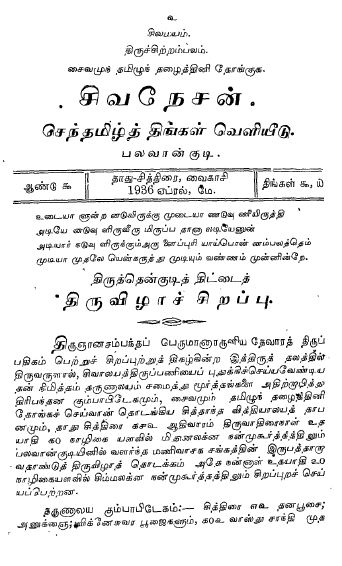 உ
சிவமயம்.
திருச்சிற்றம்பலம்.
சைவமுந் தமிழுந் தழைத்தினி தோங்குக.
சிவநேசன்.
செந்தமிழ்த் திங்கள் வெளியீடு.
பலவான்குடி.
ஆண்டு ௯
தாது-சித்திரை, வைகாசி
1936 ஏப்ரல், மே.
திங்கள் ௯, ௰
உடையா ளுன்ற னடுவிருக்கு முடையா ணடுவு ணீயிருத்தி
அடியே னடுவு ளிருவீரு மிருப்ப தானா லடியேனுன்
அடியார் நடுவு ளிருக்கும்அரு ளைப்புரி யாய்பொன் னம்பலத்தெம்
முடியா முதலே யென்கருத்து முடியும் வண்ணம் முன்னின்றே.
திருத்தென்குடித் திட்டைத்
திருவிழாச் சிறப்பு.
திருஞானசம்பந்தப் பெருமானாருளிய தேவாரத் திருப்
பதிகம் பெற்றுச் சிறப்புற்றுத் திகழ்கின்ற இத்திருத் தலத்தில்
திருவருளால், சிவாலயத் திருப்பணியைப் புதுக்கிச்செய்யவேண்டிய
தன் நிமித்தம் தருணாலயம் சமைத்து மூர்த்தங்களை அதிற்
தாபன கும்பாபிடேகமும், சைவமும் தமிழுந் தழைத்தினி
தோங்கச் செய்வான் தொடங்கிய சித்தாந்த வித்தியாலயத் தாப
னமும், தாது சித்திரை ௧௪௨ ஆதிவாரம் திருவாதிரைநாள் உத
யாதி ௧௦ நாழிகை யளவில் மிதுனலக்ன நன்முகூர்த்தத்திலும்
பலவான்குடியினில் வளர்ந்த மணிவாசக சங்கத்தின் இருபத்தாறா
வதாண்டுத் திருவிழாத் தொடக்கம் அதே நன்னாள் உதயாதி ௨௦
நாழிகையளவில் சிம்மலக்ன நன்முகூர்த்தத்திலும் சிறப்புறச் செய்
யப்பெற்றன.
தருணாலய கும்பாபிடேகம்:— சித்திரை ௭௨ தனபூசை;
அனுக்ஞை; விக்னேசுவர பூஜைகளும், ௧௦௨ வாஸ்து சாந்தி முத